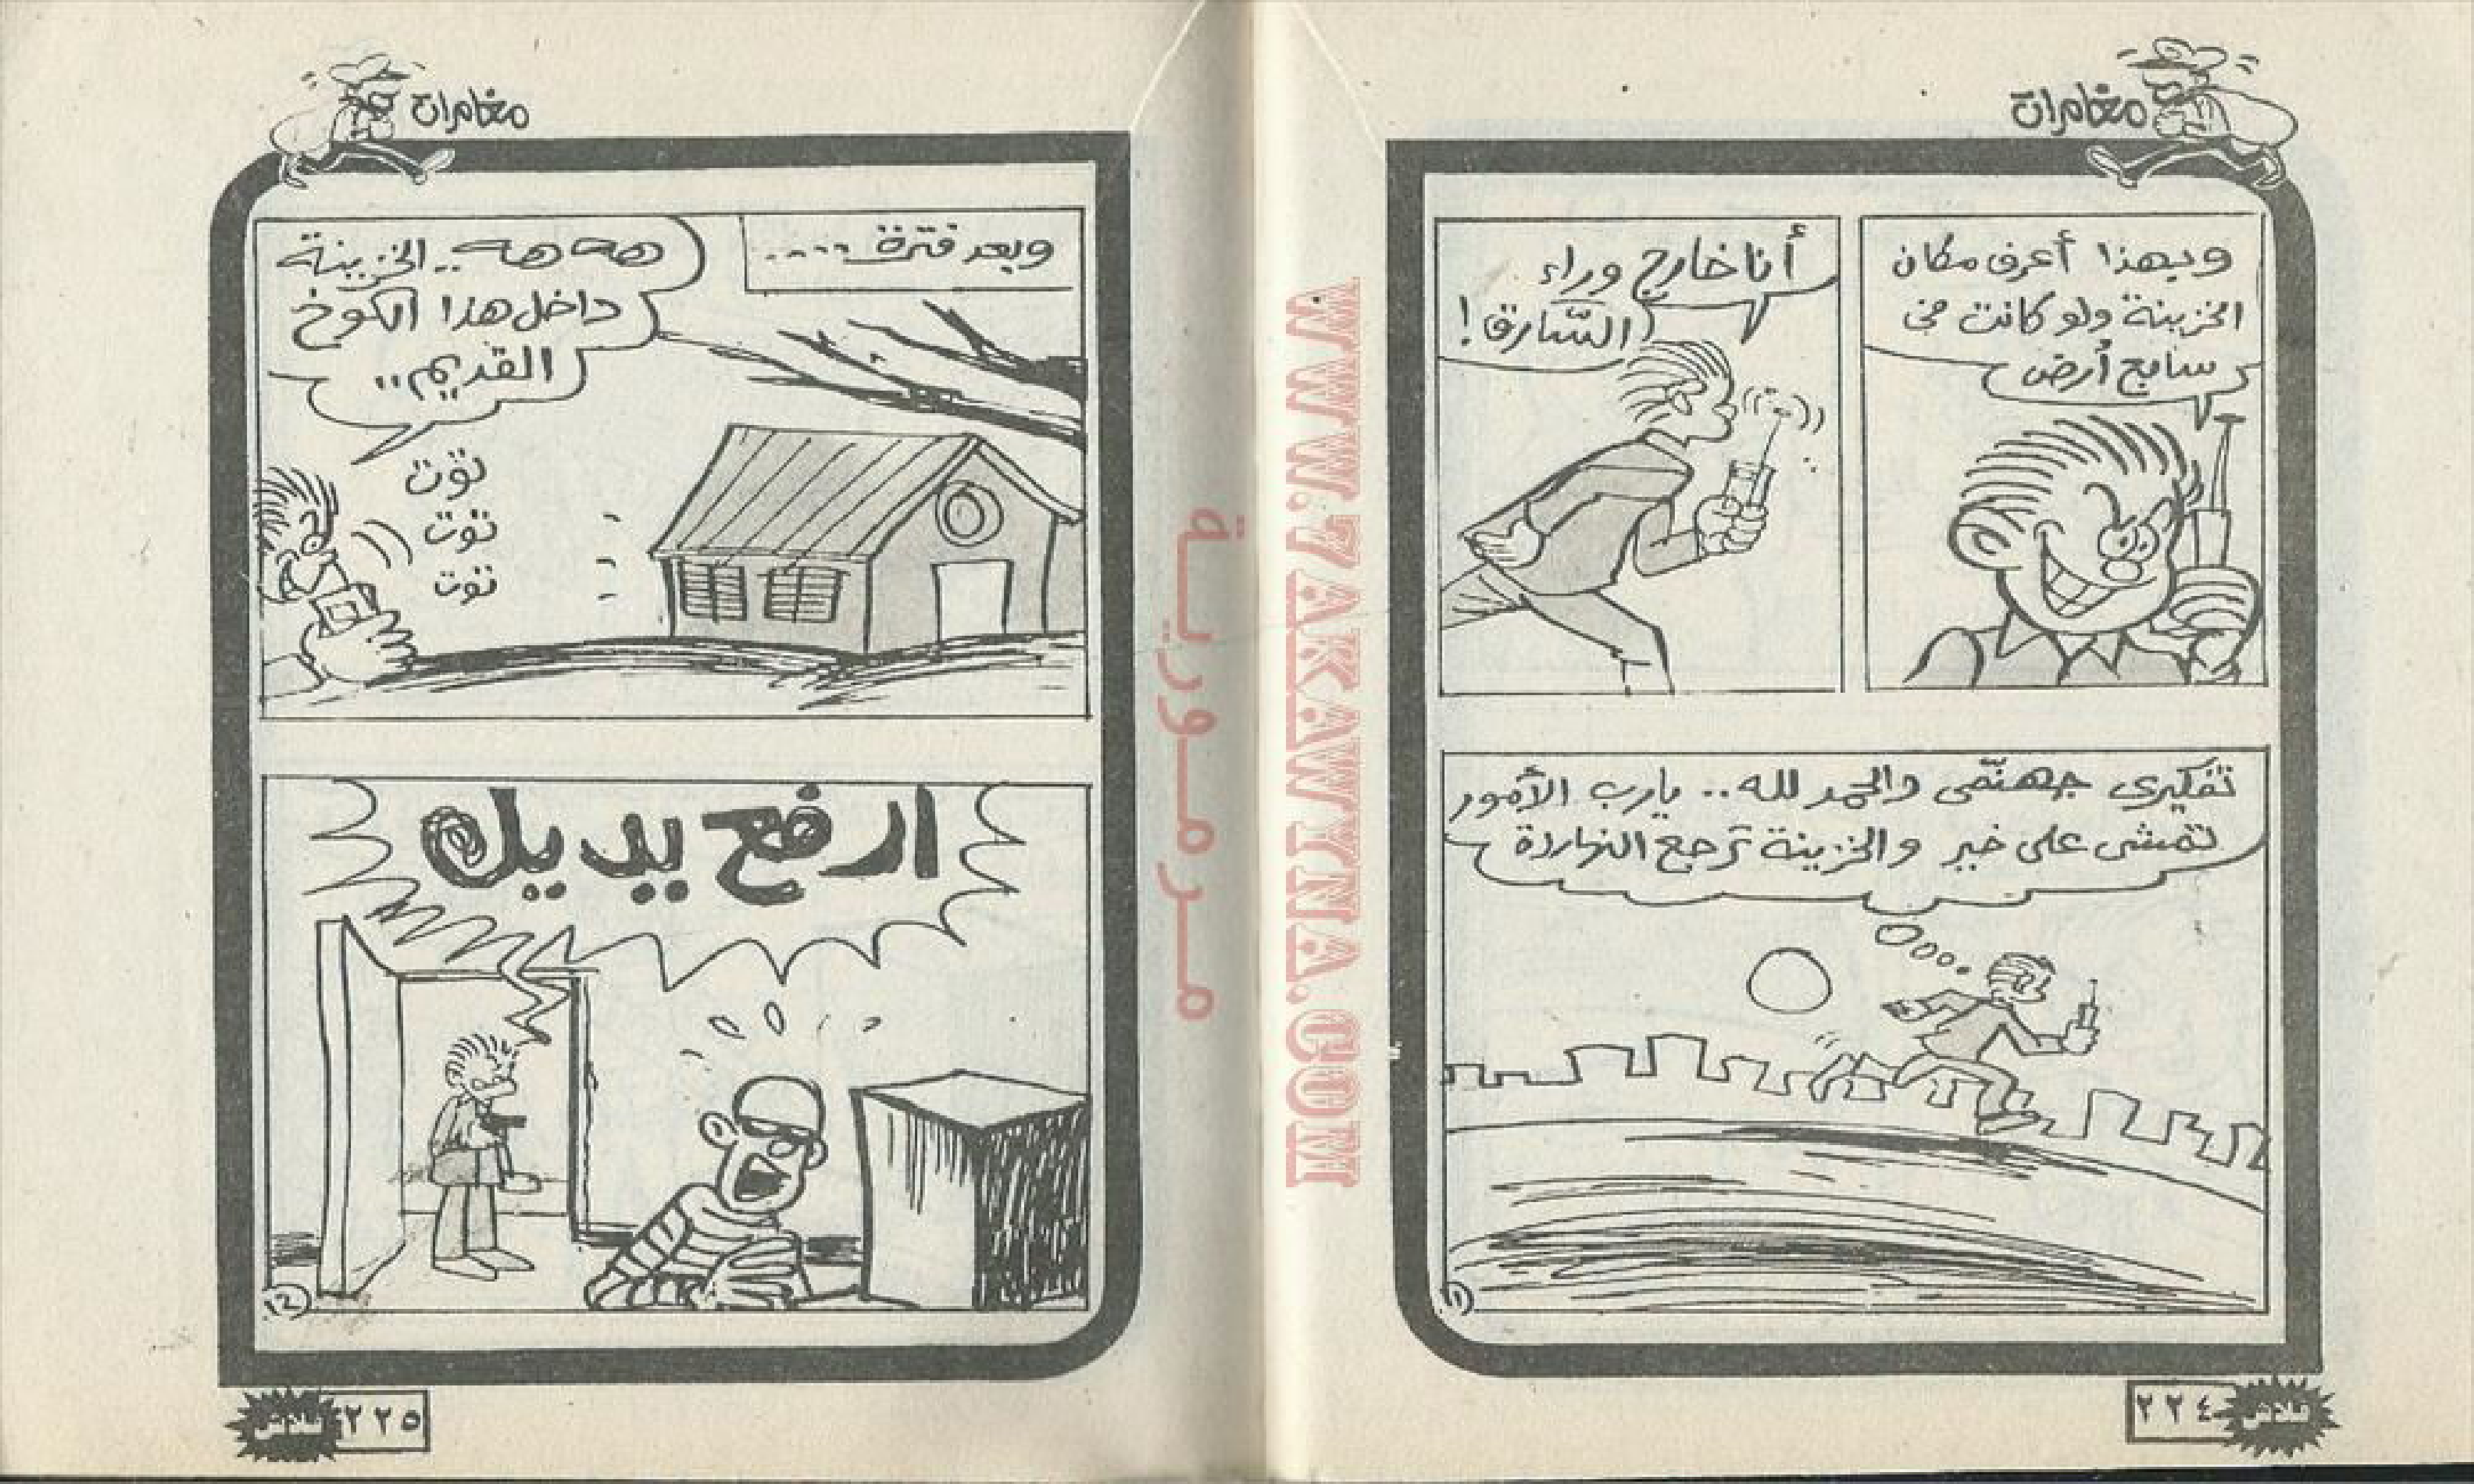 مغامرات
وبهذا أعرف مكان
الخزينة ولو كانت في
سابع أرض
أنا خارج وراء
السّارق!
تفكيرى جهنّمى والحمد لله.. يارب الأمور
تمشى على خير والخزينة ترجع النهاردة
١
٢٢٤
فلاش
WWW.7AKAWYNA.COM
مرمورية
مغامرات
وبعد فترة ....
هه هه.. الخزينة
داخل هذا الكوخ
القديم..
توت
توت
توت
ارفع يديك
٢
٢٢٥
فلاش